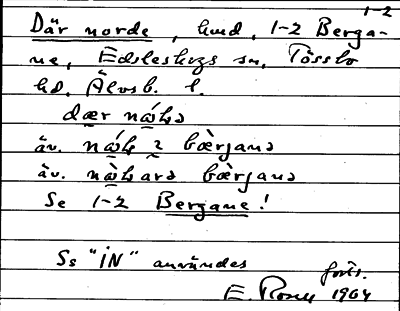 1-2
Där norde, hmd, 1-2 Berga-
ne, Edsleskogs sn, Tössbo
hd, Älvsb. l.
dær
äv. bærjanə
äv. bærjanə
Se 1-2 Bergane!
Ss "IN" användes
forts.
E. Rosell 1964